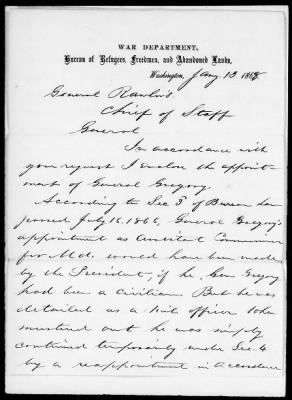 WAR DEPARTMENT,
Bureau of Refugees, Freedmen, and Abandoned Lands,
Washington, Jany 13 1868
General Rawlins
Chief of Staff
General
In accordance with
your request I enclose the appoint-
ment of General Gregory.
According to Sec 3 of Bureau law
passed July 16, 1866, General Gregory's
appointment as Assistant Commissioner
for Md. would have been made
by the President, if he, Gen Gregory
had been a civilian But he was
detailed as a officer When
mustered out he was simply
continued temporarily under Sec. 4
by a reappointment in accordance